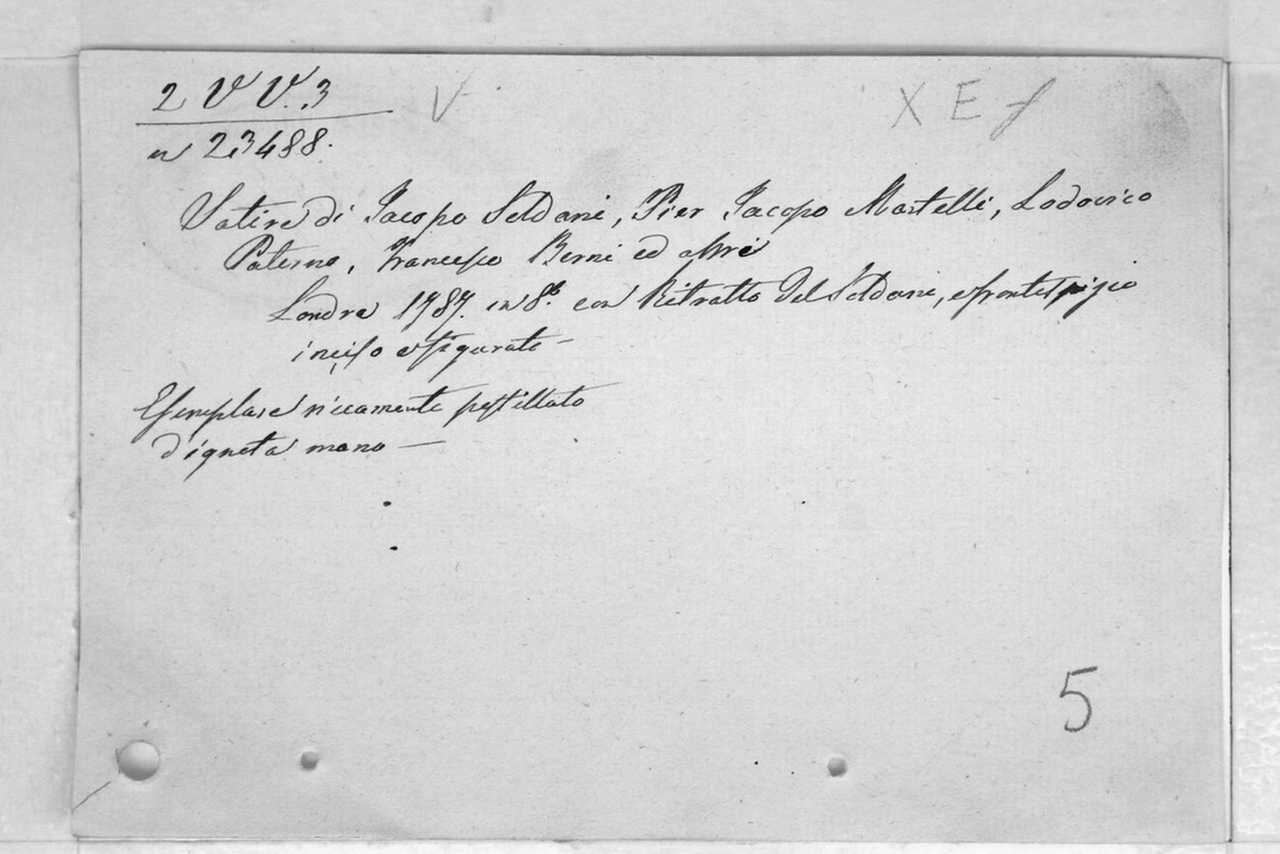 2 V V. 3 V X E f
n 23488.
Satire di Jacopo Soldani, Pier Jacopo Martelli, Lodovico
Paterno, Francesco Berni ed altri
Londra 1787. in 8.º con Ritratto del Soldani, e frontespizio
inciso e figurato —
Esemplare riccamente postillato
d'ignota mano —
5